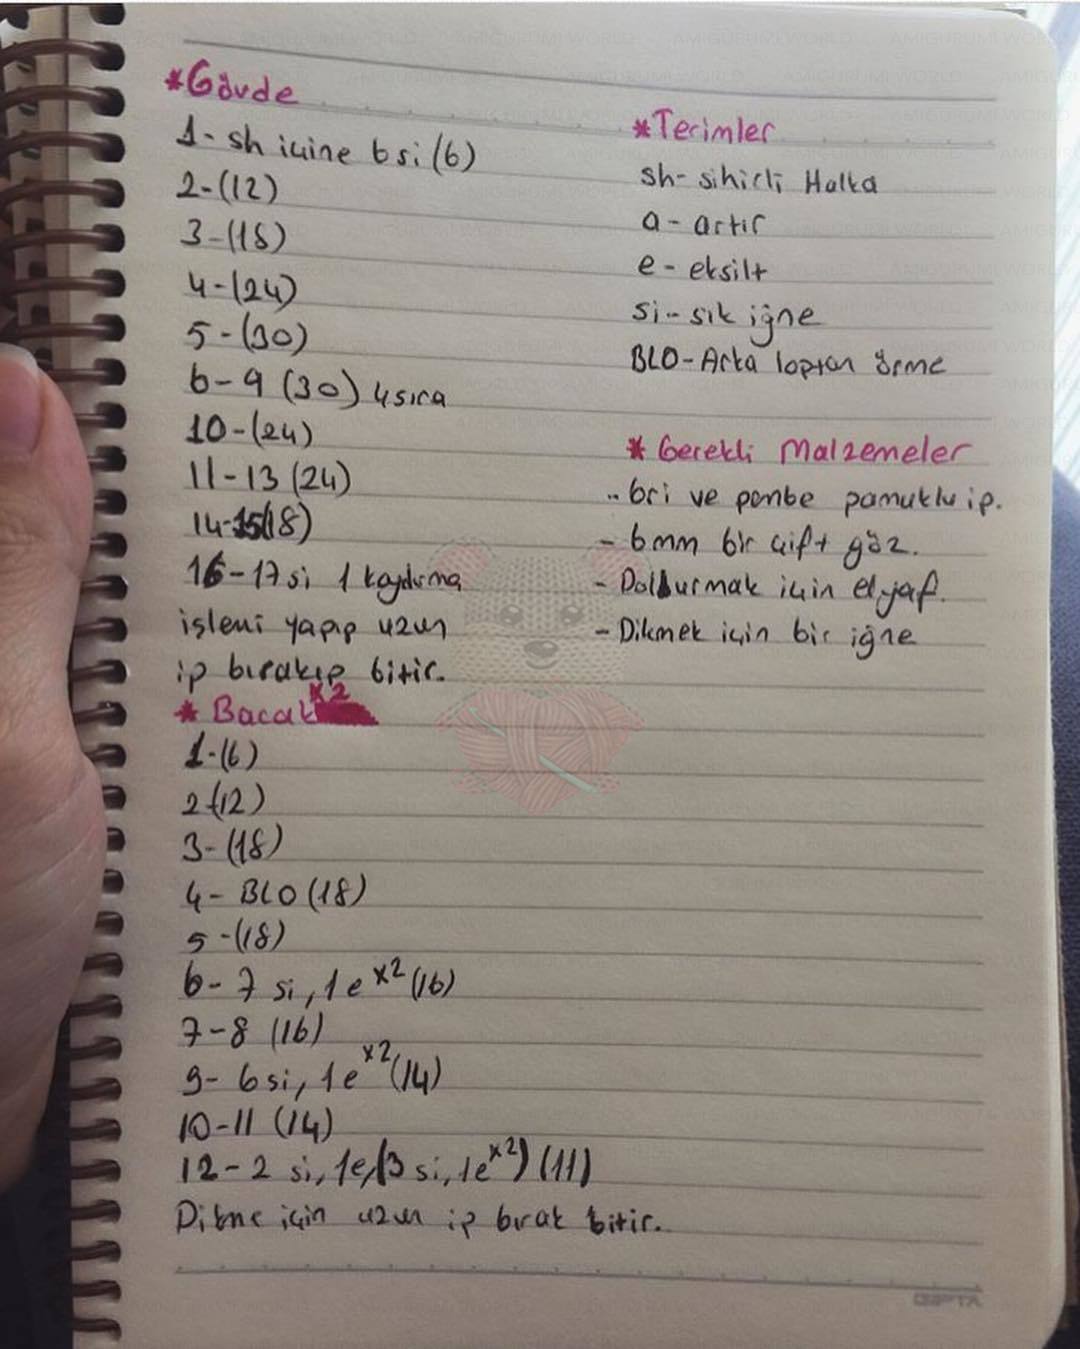 *Gövde
1- sh içine 6 si (6)
2-(12)
3-(18)
4-(24)
5-(30)
6-9 (30) 4 sıra
10-(24)
11-13 (24)
14-15(18)
16-17 si 1 kaydırma
işlemi yapıp uzun
ip bırakıp bitir.
* Bacak x2
1-(6)
2-(12)
3-(18)
4- BLO (18)
5-(18)
6- 7 si, 1e x2 (16)
7-8 (16)
9- 6 si, 1e x2 (14)
10-11 (14)
12- 2 si, 1e, (3 si, 1e x2) (11)
Dikme için uzun ip bırak bitir.
*Terimler
sh- sihirli Halka
a- artır
e- eksilt
si- sık iğne
BLO-Arka loptan örme
* Gerekli Malzemeler
- bri ve pembe pamuklu ip.
- 6mm bir çift göz.
- Doldurmak için elyaf.
- Dikmek için bir iğne